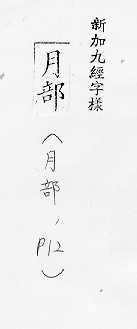 新加九經字樣
月部
(月部,P12)